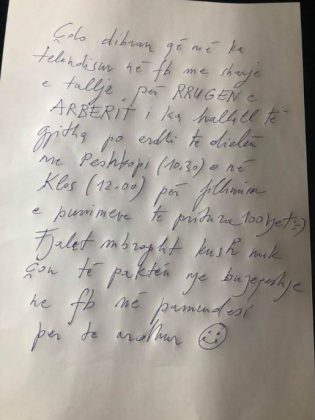 Çdo dibran që më ka
telendisur në fb me sharje
e tallje për RRUGËN e
ARBËRIT i ka hallall të
gjitha po erdhi te dielën
në Peshkopi (10.30) o në
Klos (12.00) për fillimin
e punimeve te pritura 100 vjet :)
Fjalet mbrapsht kush nuk
çon të paktën nje buzeqeshje
ne fb në pamundesi
per te ardhur ☺